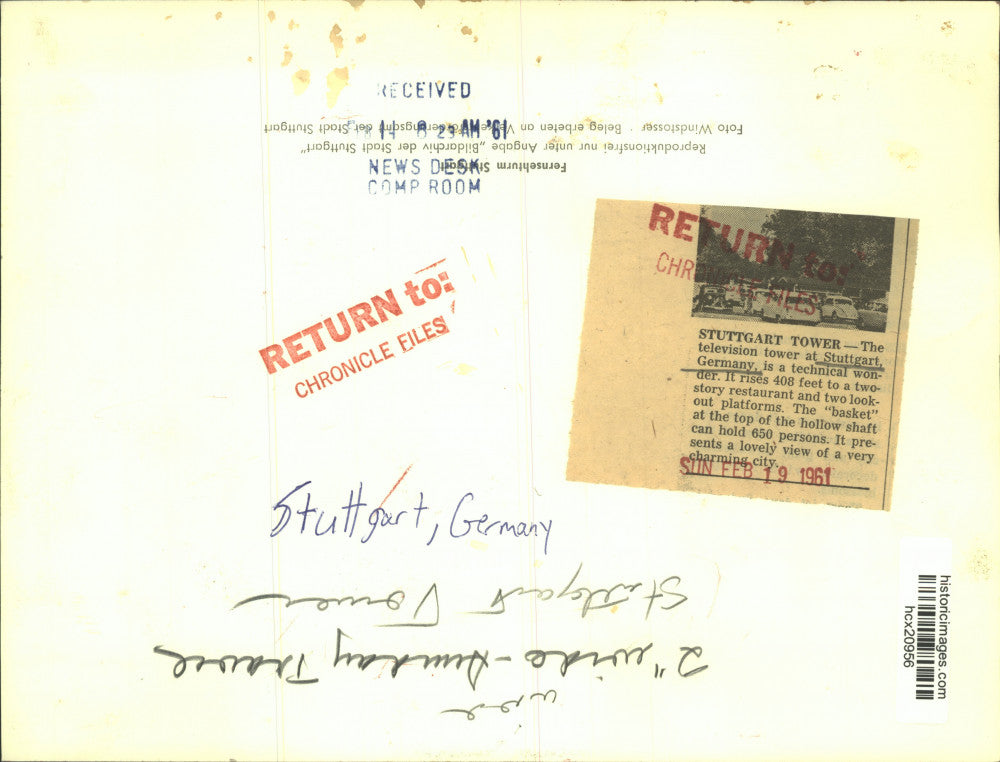 RECEIVED
14 8 23 AM '61
NEWS DESK
COMP ROOM
Fernsehturm Stuttgart
Reproduktionsfrei nur unter Angabe „Bildarchiv der Stadt Stuttgart"
Foto Windstosser · Beleg erbeten an der Stadt Stuttgart
RETURN to:
CHRONICLE FILES
RETURN to:
CHRONICLE FILES
STUTTGART TOWER — The
television tower at Stuttgart,
Germany, is a technical won-
der. It rises 408 feet to a two-
story restaurant and two look-
out platforms. The "basket"
at the top of the hollow shaft
can hold 650 persons. It pre-
sents a lovely view of a very
charming city.
SUN FEB 19 1961
Stuttgart, Germany
2" wide - Sunday Travel
Stuttgart Tower
historicimages.com
hcx20956